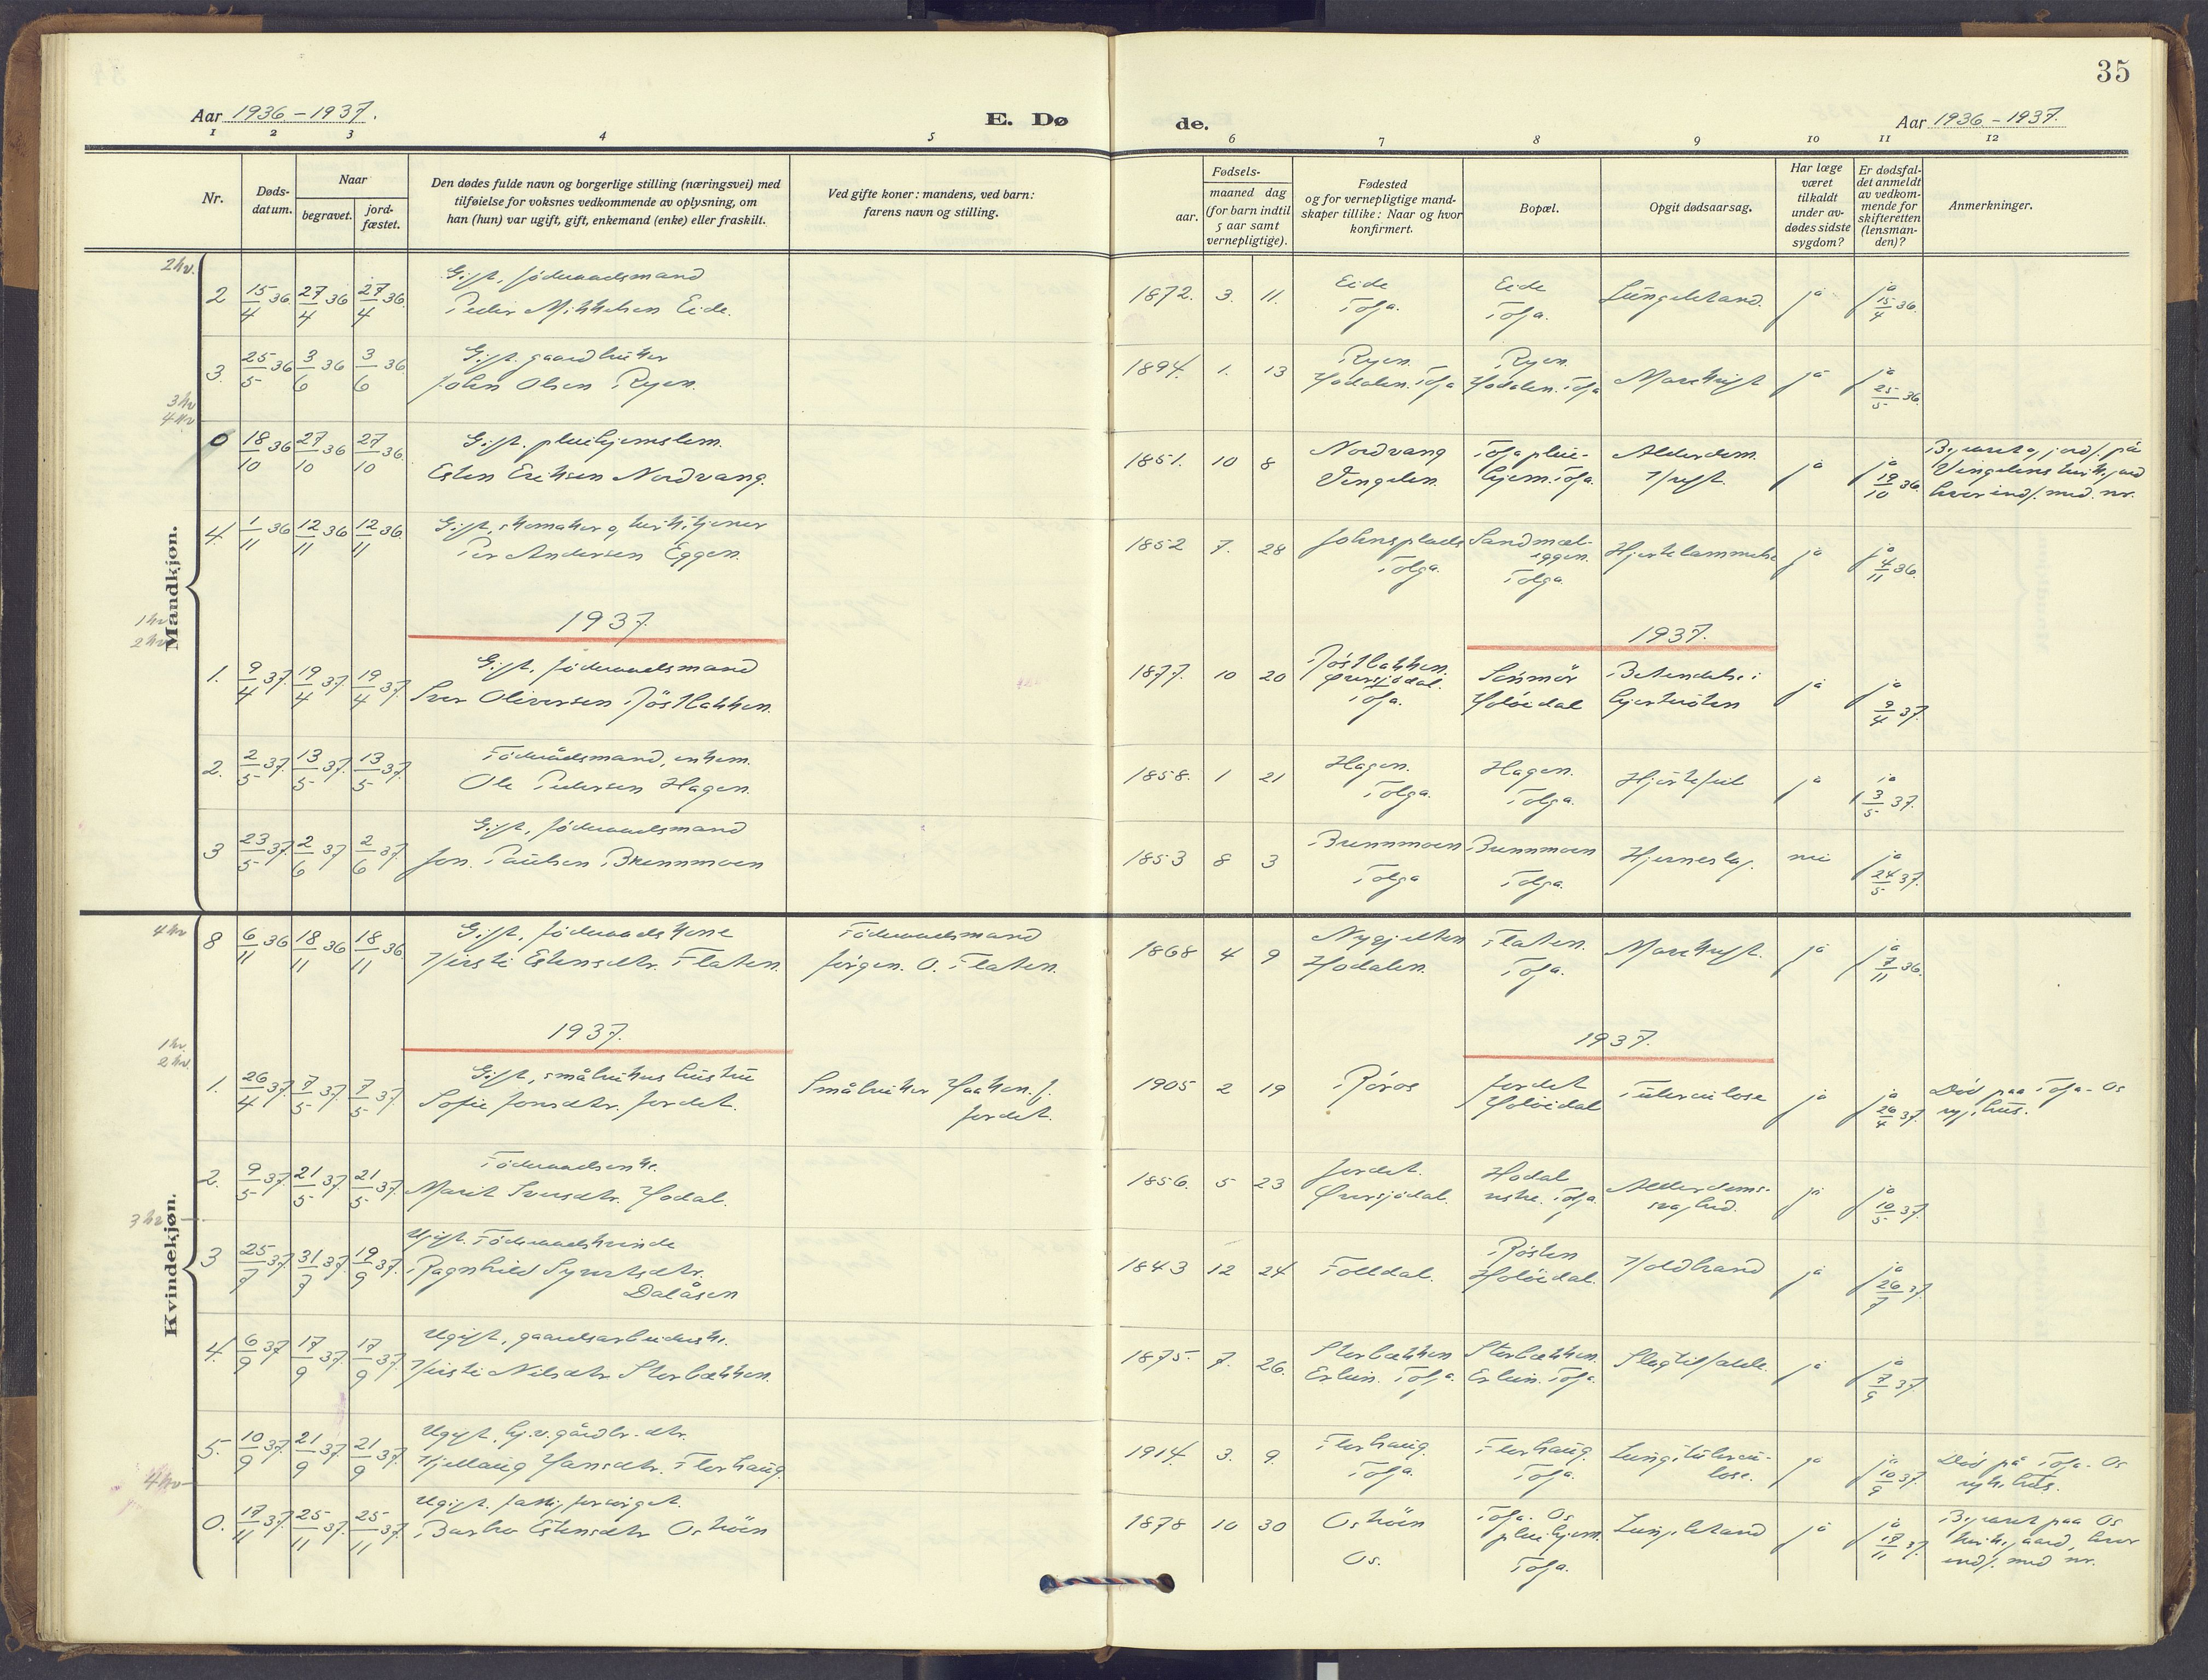 35
Aar 1936-1937.
E. Døde.
Aar 1936-1937.
1 2 3 4 5 6 7 8 9 10 11 12
Nr.
Døds-
datum.
Naar
begravet.
jord-
fæstet.
Den dødes fulde navn og borgerlige stilling (næringsvei) med
tilføielse for voksnes vedkommende av oplysning, om
han (hun) var ugift, gift, enkemand (enke) eller fraskilt.
Ved gifte koner: mandens, ved barn:
farens navn og stilling.
Fødsels-
aar.
maaned dag
(for barn indtil
5 aar samt
vernepligtige).
Fødested
og for vernepligtige mand-
skaper tillike: Naar og hvor
konfirmert.
Bopæl.
Opgit dødsaarsag.
Har læge
været
tilkaldt
under av-
dødes sidste
sygdom?
Er dødsfal-
det anmeldt
av vedkom-
mende for
skifteretten
(lensman-
den)?
Anmerkninger.
Mandkjøn.
2 kv.
2 15/4 36. 27/4 36 27/4 36. Gift, føderaadsmand
Peder Mikkelsen Eide. 1872. 3. 11. Eide
Tolga. Eide
Tolga. Lungebetænd. ja ja
15/4 36.
3. 25/5 36 3/6 36 3/6 36 Gift. gaardbruker
John Olsen Ryen. 1894. 1. 13 Ryen.
Hodalen. Tolga Ryen.
Hodalen. Tolga Mavekræft ja ja
25/5 36.
3 kv
4 kv
0 18/10 36 27/10 36 27/10 36. Gift. pleiehjemslem.
Esten Eriksen Nordvang. 1851. 10 8 Nordvang
Vingelen. Tolga pleie-
hjem. Tolga. Alderdom.
Kræft. ja ja
19/10 36. Begravet og jordf. på
Vingelens kirkegaard
hvor indf. med nr.
4. 1/11 36 12/11 36 12/11 36. Gift, skomaker og kirketjener
Per Andersen Eggen. 1852 7. 28 Johnsplads
Tolga. Sandmæl-
eggen.
Tolga. Hjertelammelse ja ja
4/11 36.
1937.
1937.
1 kv
2 kv
1. 9/4 37. 19/4 37. 19/4 37. Gift, føderaadsmand
Iver Oliversen Røstbakken. 1877. 10 20 Røstbakken.
Øversjødal.
Tolga. Sømmør
Holøidal Betendelse i
hjerteroten ja ja
9/4 37.
2. 2/5 37. 13/5 37. 13/5 37. Føderådsmand, enkem.
Ole Pedersen Hagen. 1858. 1 21 Hagen.
Tolga. Hagen.
Tolga. Hjertefeil ja ja
3/5 37.
3 23/5 37. 2/6 37 2/6 37. Gift, føderaadsmand
Jon Paulsen Brennmoen 1853 8 3 Brennmoen
Tolga Brennmoen
Tolga. Hjerneslag. nei ja
24/5 37.
Kvindekjøn.
4 kv
8 6/11 36 18/11 36 18/11 36. Gift, føderaadskone
Kirsti Estensdtr. Flaten. Føderaadsmand
Jørgen. O. Flaten. 1868 4 9 Nygjelten
Hodalen. Flaten.
Tolga. Mavekræft. ja ja
7/11 36.
1937.
1937.
1 kv.
2 kv.
1. 26/4 37. 7/5 37. 7/5 37. Gift, småbrukerhustru
Sofie Jonsdtr. Jordet. Småbruker Haakon J.
Jordet. 1905 2 19 Røros Jordet
Holøidal Tuberculose ja ja
26/4 37. Død paa Tolga-Os
sykehus.
2. 9/5 37. 21/5 37. 21/5 37. Føderaadsenke.
Marit Iversdtr. Hodal. 1856. 5 23 Jordet.
Øversjødal. Hodal
østre. Tolga. Alderdoms-
svaghed. ja ja
10/5 37.
3 kv
3 25/7 37. 31/7 37. 19/9 37. Ugift. Føderaadskvinde
Ragnhild Syvertsdtr.
Dalåsen 1843 12 24 Folldal. Røsten
Holøidal. Koldbrand ja ja
26/7 37.
4. 6/9 37 17/9 37. 17/9 37. Ugift, gaardsarbeiderske.
Kirsti Nilsdtr. Storbækken. 1875. 7. 26. Storbækken
Erlien. Tolga. Storbækken.
Erlien. Tolga. Slagtilfælde. ja ja
7/9 37.
5. 10/9 37. 21/9 37. 21/9 37. Ugift. hj.v. gårdbr. dtr.
Kjellaug Hansdtr. Florhaug. 1914. 3. 9. Florhaug.
Tolga. Florhaug.
Tolga. Lungetubercu-
lose. ja ja
10/9 37. Død på Tolga-Os
sykehus.
4 kv
0. 17/11 37. 25/11 37. 25/11 37. Ugift. fattigforsørget.
Barbro Estensdtr Oskøien 1878 10 30 Oskøien
Os. Tolga-Os
pleiehjem.
Tolga. Lungebetænd ja ja
17/11 37. Begravet paa Os
kirkegaard, hvor
indf. med nr.